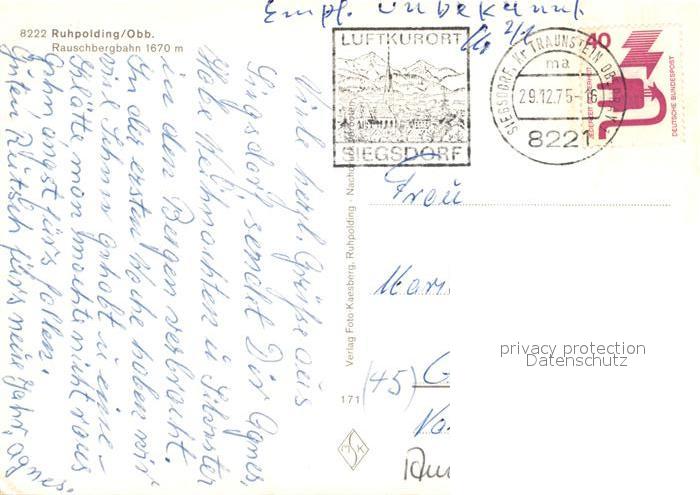 Empf. unbekannt
8222 Ruhpolding/Obb.
Rauschbergbahn 1670 m
LUFTKURORT
SIEGSDORF
SIEGSDORF, Kr TRAUNSTEIN OBERBAY
ma
29.12.75-16
8221
40
JEDERZEIT SICHERHEIT
DEUTSCHE BUNDESPOST
Viele herzl. Grüße aus
Siegsdorf sendet Dir Agnes,
Habe Weihnachten u Silvester
in den Bergen verbracht.
In der ersten Woche haben wir
viel Schnee gehabt u eine
Glätte man machte nicht raus
gehn angst fürs fallen.
Guten Rutsch fürs neue Jahr, Agnes.
Verlag Foto-Kaesberg, Ruhpolding
171
MSK
Frau
Mar
(45) G
Va
privacy protection
Datenschutz